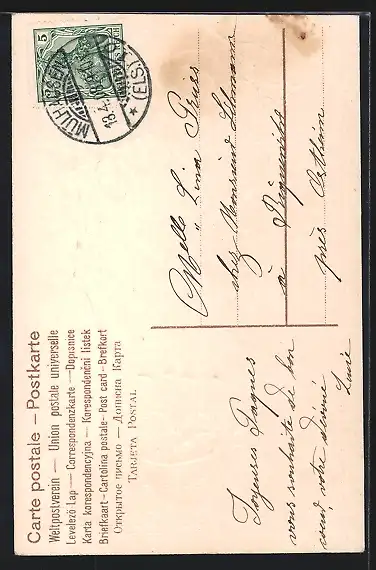 Carte postale – Postkarte
Weltpostverein — Union postale universelle
Levelező Lap — Correspondenzkarte — Dopisnice
Karta korespondencyjna — Korespondenční lístek
Briefkaart - Cartolina postale - Post card - Brefkort
Открытое письмо — Дописна Карта
TARJETA POSTAL
5
MÜLHAUSEN
18.4.
* (ELS.)
Melle Lina
chez Monsieur
à
près Ostheim
Joyeuses Pâques
vous souhaite de bon
cœur, votre dévoué